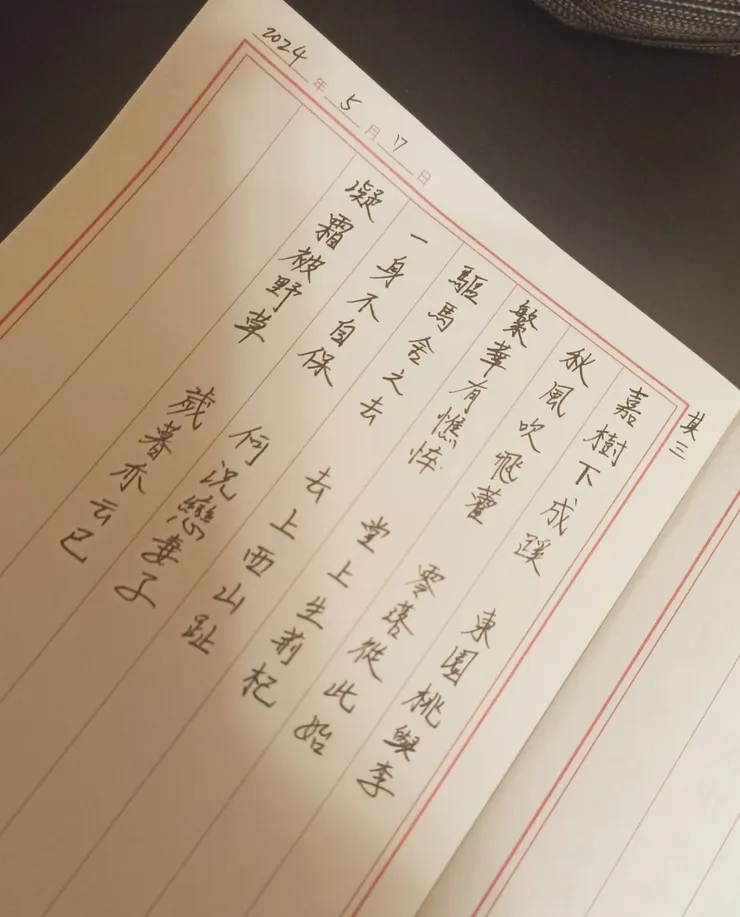 2024年5月17日
其三
嘉樹下成蹊 東園桃與李
秋風吹飛藿 零落從此始
繁華有憔悴 堂上生荊杞
驅馬舍之去 去上西山趾
一身不自保 何況戀妻子
凝霜被野草 歲暮亦云已